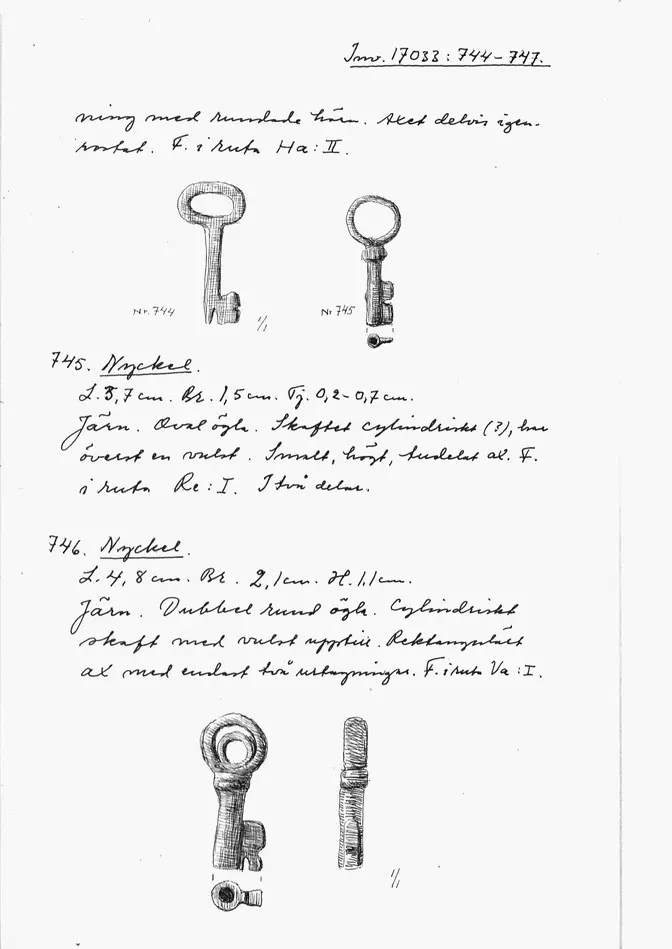 Inv. 17033 : 744-747.
ning med rundade hörn. Axet delvis igen-
rostat. F. i ruta Ha : II.
Nr. 744
1/1
Nr 745
745. Nyckel.
L. 3,7 cm. Br. 1,5 cm. Tj. 0,2-0,7 cm.
Järn. Oval ögla. Skaftet cylindriskt (?), har
överst en vulst. Smalt, högt, tudelat ax. F.
i ruta Re : I. I två delar.
746. Nyckel.
L. 4,8 cm. Br. 2,1 cm. H. 1,1 cm.
Järn. Dubbel rund ögla. Cylindriskt
skaft med vulst upptill. Rektangulärt
ax med endast två urtagningar. F. i ruta Va : I.
1/1